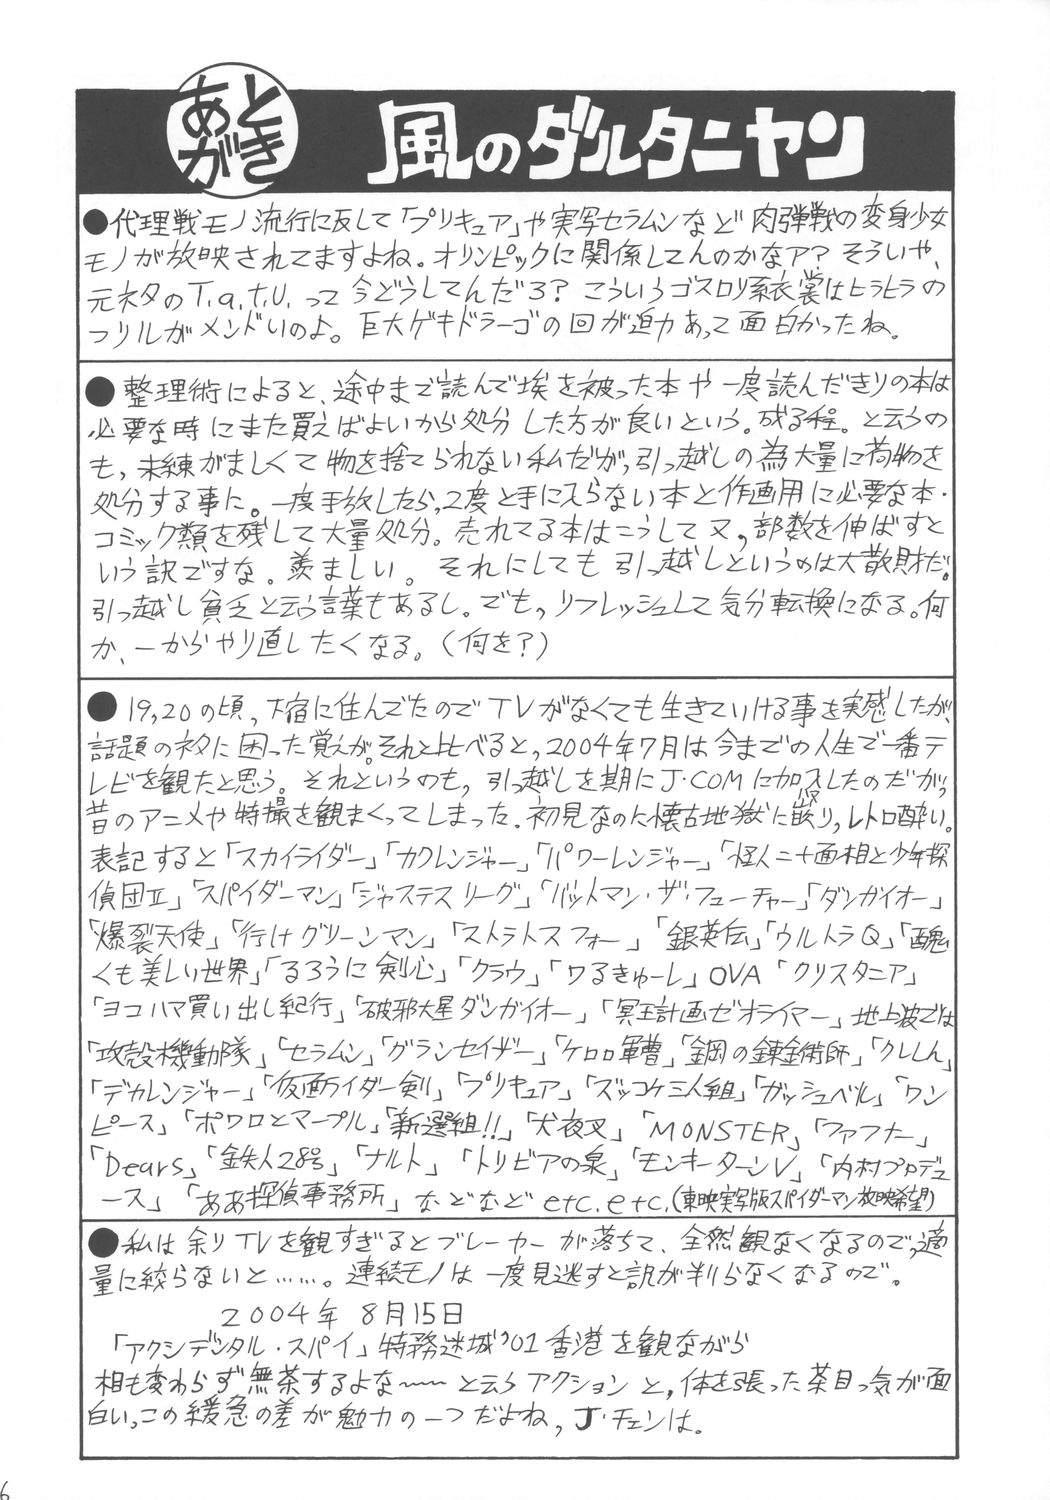 あとがき
風のダルタニヤン
●代理戦モノ流行に反して「プリキュア」や実写セラムンなど肉弾戦の変身少女
モノが放映されてますよね。オリンピックに関係してんのかなァ?そういや、
元ネタのT.a.t.U.って今どうしてんだろ?こういうゴスロリ系衣裳はヒラヒラの
フリルがメンドいのよ。巨大ゲキドラーゴの回が迫力あって面白かったね。
●整理術によると、途中まで読んで埃を被った本や一度読んだきりの本は
必要な時にまた買えばよいから処分した方が良いという。成る程。と云うの
も,未練がましくて物を捨てられない私だが,引っ越しの為大量に荷物を
処分する事に。一度手放したら,2度と手に入らない本と作画用に必要な本・
コミック類を残して大量処分。売れてる本はこうして又,部数を伸ばすと
いう訳ですな。羨ましい。それにしても引っ越しというのは大散財だ。
引っ越し貧乏と云う言葉もあるし。でも,リフレッシュして気分転換になる。何
か、一からやり直したくなる。(何を?)
●19,20の頃,下宿に住んでたのでTVがなくても生きていける事を実感したが,
話題のネタに困った覚えが。それと比べると,2004年7月は今までの人生で一番テ
レビを観たと思う。それというのも,引っ越しを期にJ・COMに加入したのだが,
昔のアニメや特撮を観まくってしまった.初見なのに懐古地獄に嵌り,レトロ酔い。
表記すると「スカイライダー」「カクレンジャー」「パワーレンジャー」「怪人二十面相と少年探
偵団Ⅱ」「スパイダーマン」「ジャステスリーグ」「バットマン・ザ・フューチャー」「ダンガイオー」
「爆裂天使」「行けグリーンマン」「ストラトスフォー」「銀英伝」「ウルトラQ」「醜
くも美しい世界」「るろうに剣心」「クラウ」「ワるきゅーレ」OVA「クリスタニア」
「ヨコハマ買い出し紀行」「破邪大星ダンガイオー」「冥王計画ゼオライマー」地上波では
「攻殻機動隊」「セラムン」「グランセイザー」「ケロロ軍曹」「鋼の錬金術師」「クレしん」
「デカレンジャー」「仮面ライダー剣」「プリキュア」「ズッコケ三人組」「ガッシュベル」「ワン
ピース」「ポワロとマープル」「新選組!!」「犬夜叉」「MONSTER」「ファフナー」
「Dears」「鉄人28号」「ナルト」「トリビアの泉」「モンキーターンV」「内村プロデュ
ース」「ああ探偵事務所」などなどetc.etc.(東映実写版スパイダーマン放映希望)
●私は余りTVを観すぎるとブレーカーが落ちて、全然観なくなるので,適
量に絞らないと……。連続モノは一度見逃すと訳が判らなくなるので。
2004年8月15日
「アクシデンタル・スパイ」特務迷城'01香港を観ながら
相も変わらず無茶するよな~~と云うアクションと,体を張った茶目っ気が面
白い,この緩急の差が魅力の一つだよね,J・チェンは。
6